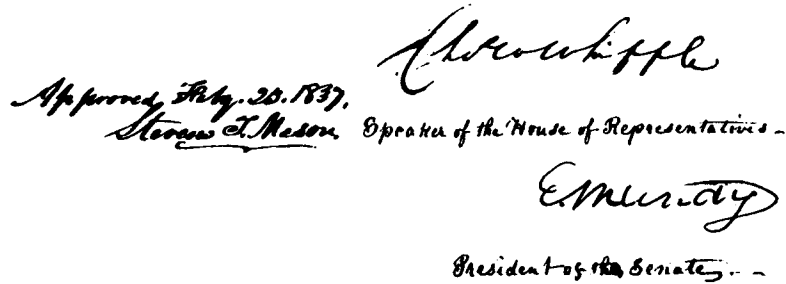 Chs W Whipple
Approved, Feby. 20. 1837.
Stevens T. Mason
Speaker of the House of Representatives -
E. Mundy
President of the Senate, - -